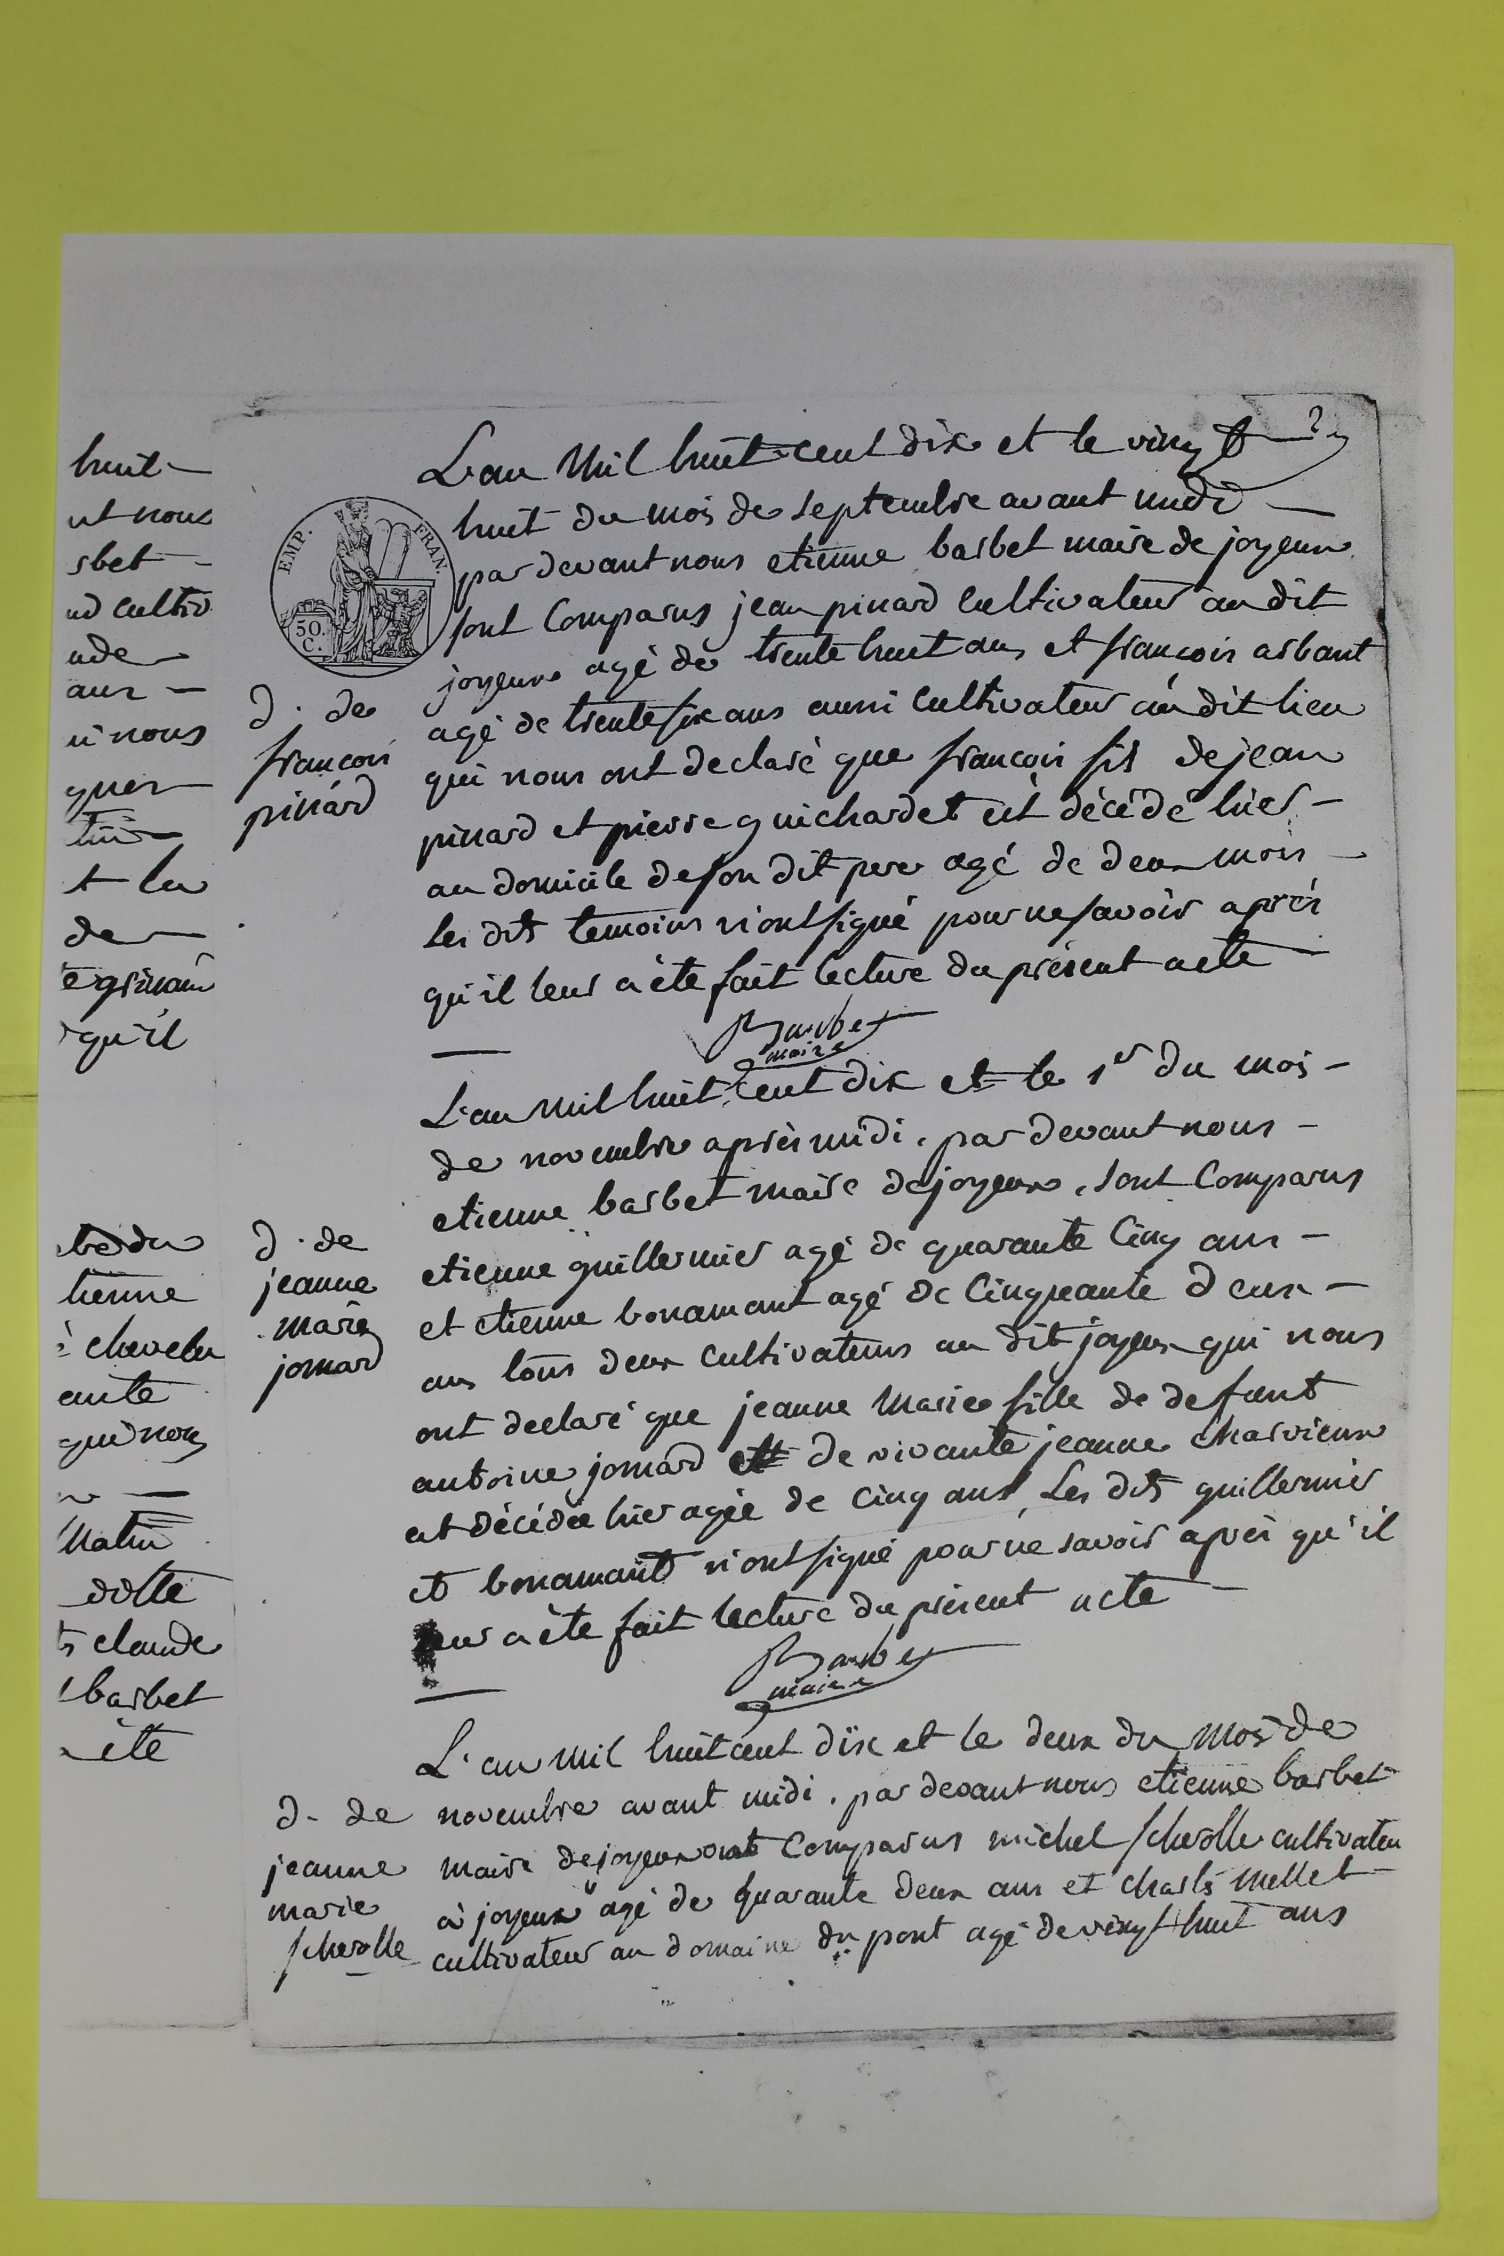 huit
nt nous
rbet
nd cultiv
nde
aux
ui nous
quer
t la
de
qu'il
tienne
chevelu
ente
qui nous
Matin
dotte
ts claude
barbet
ète
EMP. FRAN.
50. C.
d. de
francois
pinard
L'an Mil huit cent dix et le vingt
huit du mois de septembre avant midi
par devant nous etienne barbet maire de joyeux
sont Comparus jean pinard Cultivateur au dit
joyeux agé de trente huit ans et francois arbant
agé de trente six ans aussi Cultivateur au dit lieu
qui nous ont declaré que francois fils de jean
pinard et pierre guichardet est décédé hier
au domicile de son dit pere agé de deux mois
les dits temoins n'ont signé pour ne savoir après
qu'il leur a été fait lecture du présent acte
Barbet
maire
d. de
jeanne
marie
jomard
L'an Mil huit Cent dix et le 1er du mois
de novembre après midi, par devant nous
etienne barbet maire de joyeux, sont Comparus
etienne guillermier agé de quarante Cinq ans
et etienne bonamant agé de Cinquante deux
ans tous deux cultivateurs au dit joyeux qui nous
ont declaré que jeanne Marie fille de defunt
antoine jomard et de vivante jeanne charvieux
est décédée hier agée de Cinq ans Les dits guillermier
et bonamant n'ont signé pour ne savoir après qu'il
leur a été fait lecture du présent acte
Barbet
maire
d. de
jeanne
marie
scherolle
L'an mil huit cent dix et le deux du mois de
novembre avant midi, par devant nous etienne barbet
maire de joyeux ont Comparus michel scherolle cultivateu
à joyeux agé de quarante deux ans et charles mellet
cultivateur au domaine du pont agé de vingt huit ans